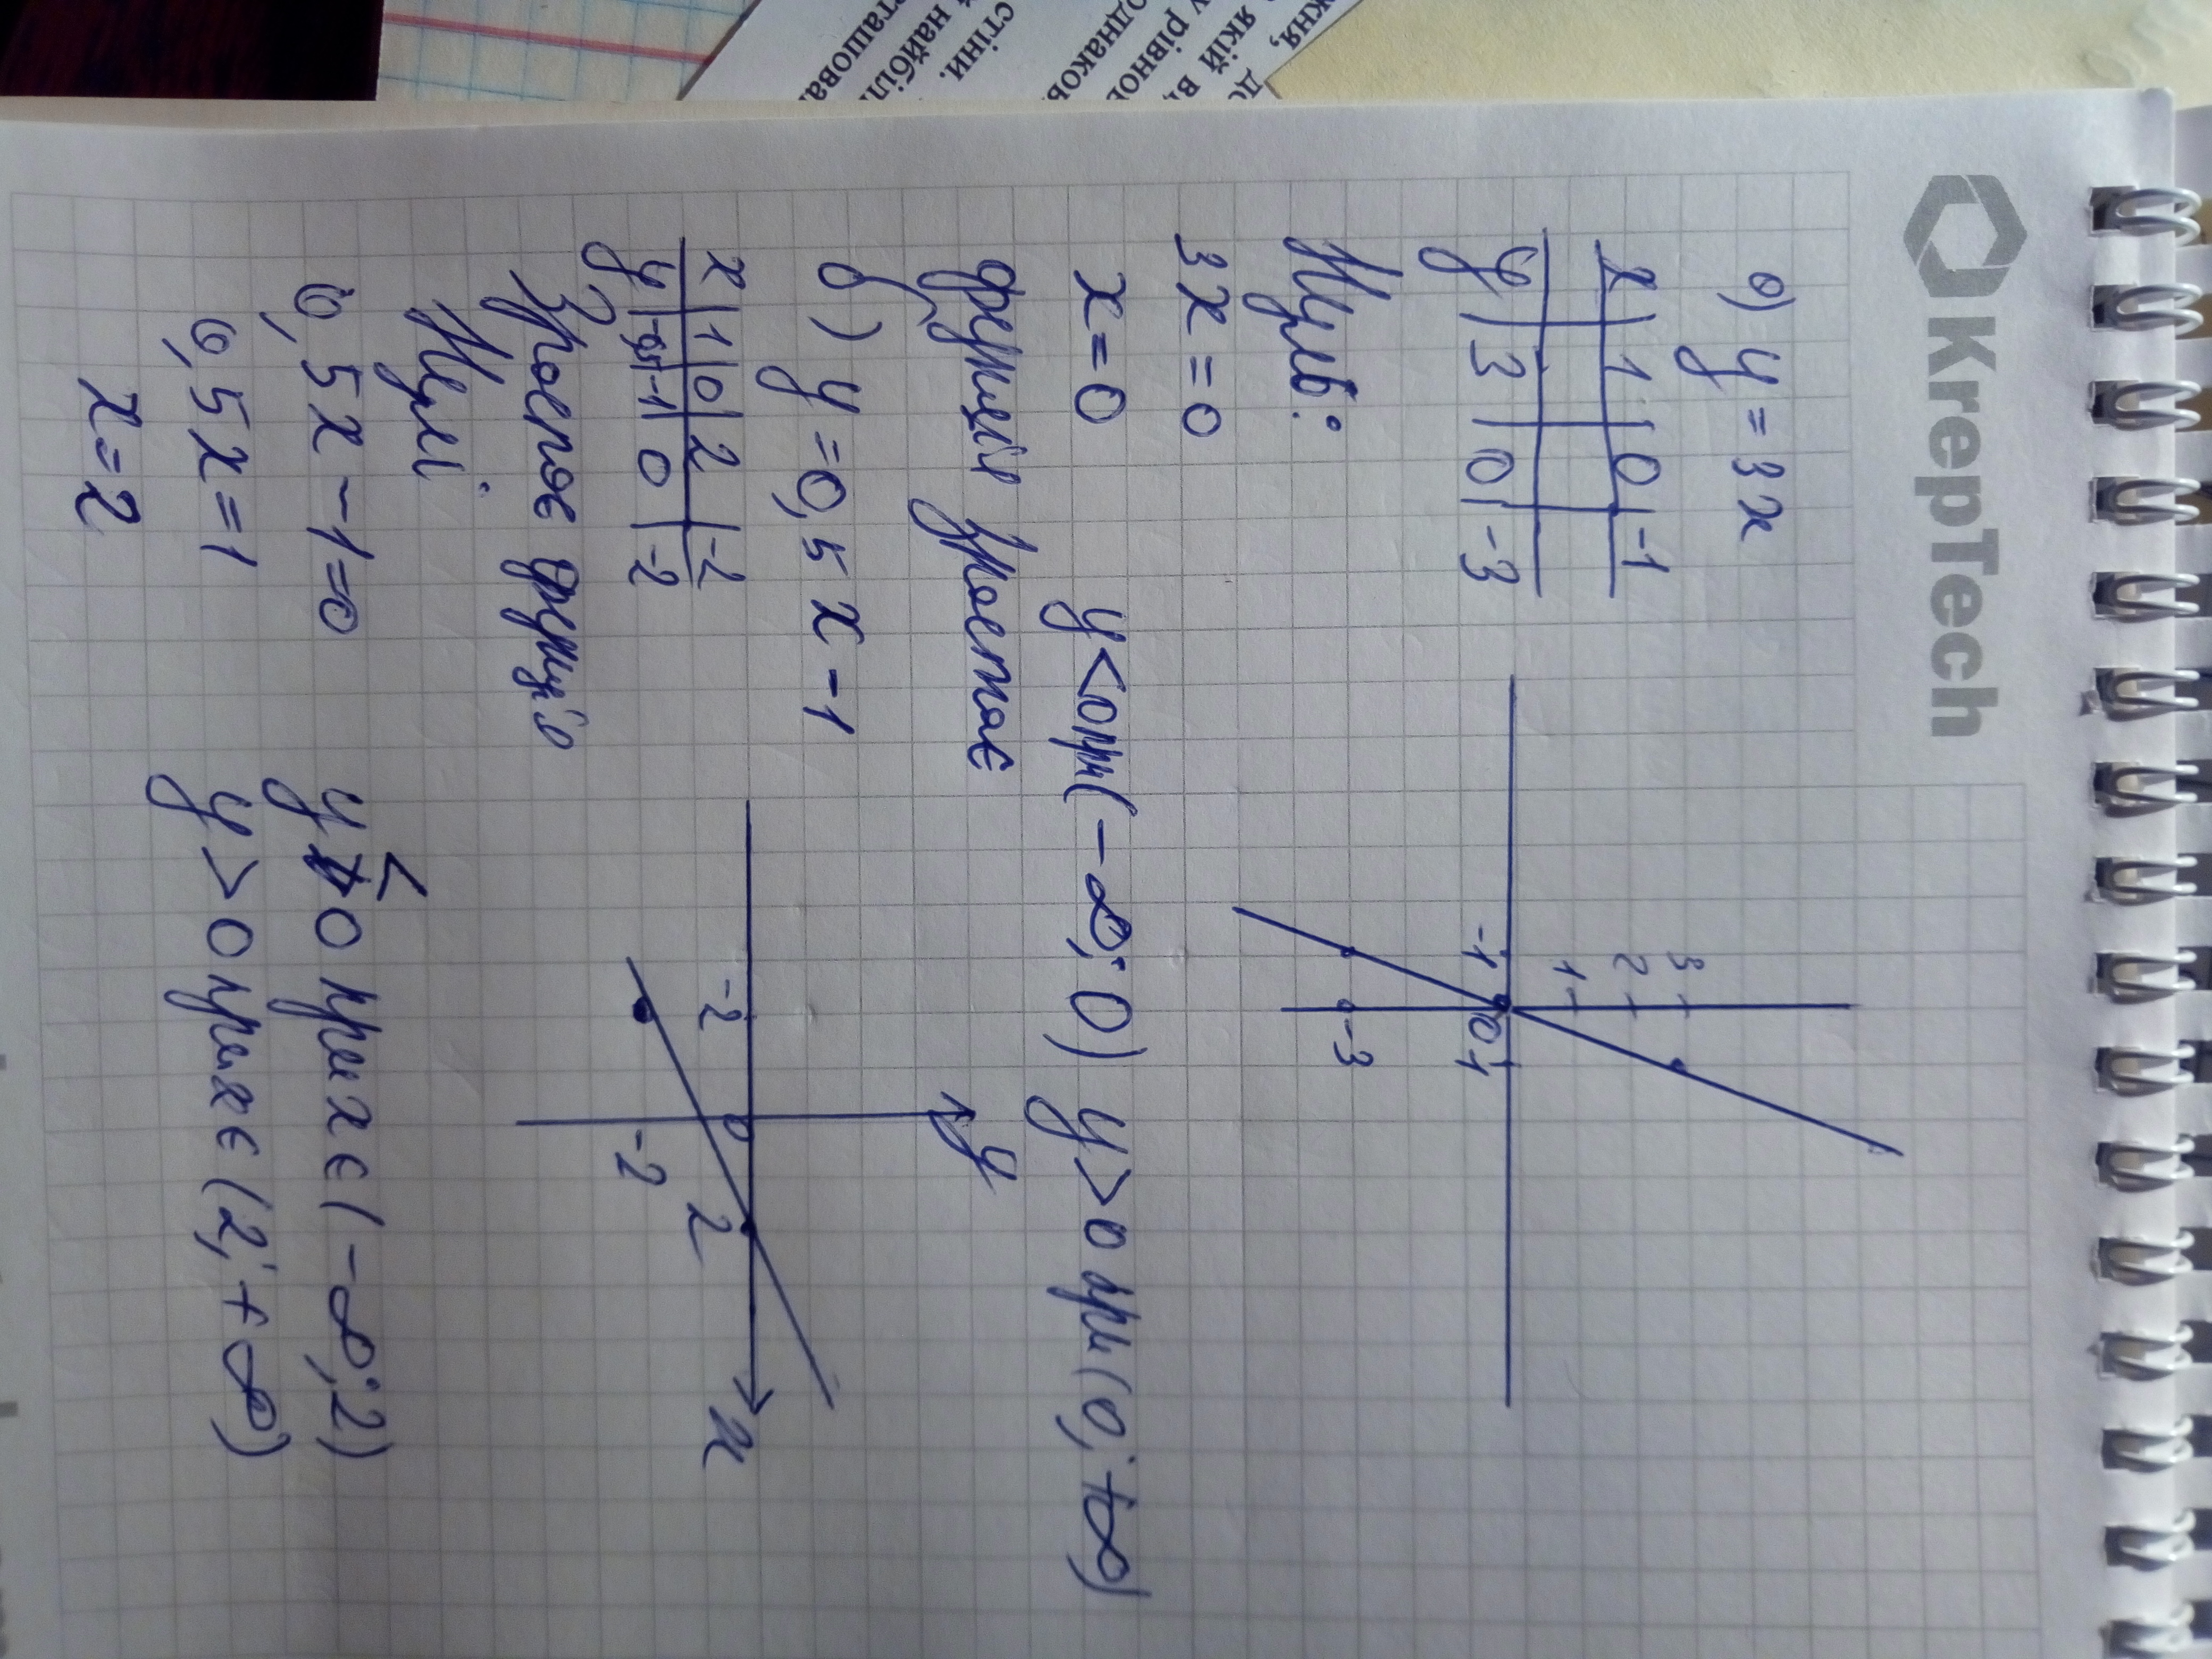 KrepTech
а) y = 3x
x | 1 | 0 | -1
y | 3 | 0 | -3
3
2
1
-1 0 1
-3
Нулі:
3x = 0
x = 0
y<0 при (-∞; 0) y>0 при (0; +∞)
функція зростає
б) y = 0,5x - 1
x | 1 | 0 | 2 | -2
y | -0,5 | -1 | 0 | -2
y
-2 0 2 x
-2
Зростає функція
Нулі
0,5x - 1 = 0
0,5x = 1
x = 2
y < 0 при x є (-∞; 2)
y > 0 при x є (2; +∞)
стіни.
у рівно
якій в